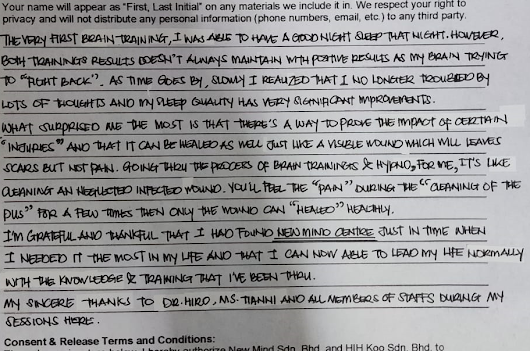 Your name will appear as "First, Last Initial" on any materials we include it in. We respect your right to
privacy and will not distribute any personal information (phone numbers, email, etc.) to any third party.
THE VERY FIRST BRAIN TRAINING, I WAS ABLE TO HAVE A GOOD NIGHT SLEEP THAT NIGHT. HOWEVER,
BOTH TRAININGS RESULTS DOESN'T ALWAYS MAINTAIN WITH POSTIVE RESULTS AS MY BRAIN TRYING
TO "FIGHT BACK". AS TIME GOES BY, SLOWLY I REALIZED THAT I NO LONGER TROUBLED BY
LOTS OF THOUGHTS AND MY SLEEP QUALITY HAS VERY SIGNIFICANT IMPROVEMENTS.
WHAT SURPRISED ME THE MOST IS THAT THERE'S A WAY TO PROVE THE IMPACT OF CERTAIN
"INJURIES" AND THAT IT CAN BE HEALED AS WELL JUST LIKE A VISIBLE WOUND WHICH WILL LEAVES
SCARS BUT NOT PAIN. GOING THRU THE PROCESS OF BRAIN TRAININGS & HYPNO, FOR ME, IT'S LIKE
CLEANING AN NEGLECTED INFECTED WOUND. YOU'LL FEEL THE "PAIN" DURING THE "CLEANING OF THE
PUS" FOR A FEW TIMES THEN ONLY THE WOUND CAN "HEALED" HEALTHILY.
I'M GRATEFUL AND THANKFUL THAT I HAD FOUND NEW MIND CENTRE JUST IN TIME WHEN
I NEEDED IT THE MOST IN MY LIFE AND THAT I CAN NOW ABLE TO LEAD MY LIFE NORMALLY
WITH THE KNOWLEDGE & TRAINING THAT I'VE BEEN THRU.
MY SINCERE THANKS TO DR. HIRO, MS. TIANNI AND ALL MEMBERS OF STAFFS DURING MY
SESSIONS HERE.
Consent & Release Terms and Conditions:
hereby authorize New Mind Sdn. Bhd. and HIH Koo Sdn. Bhd. to